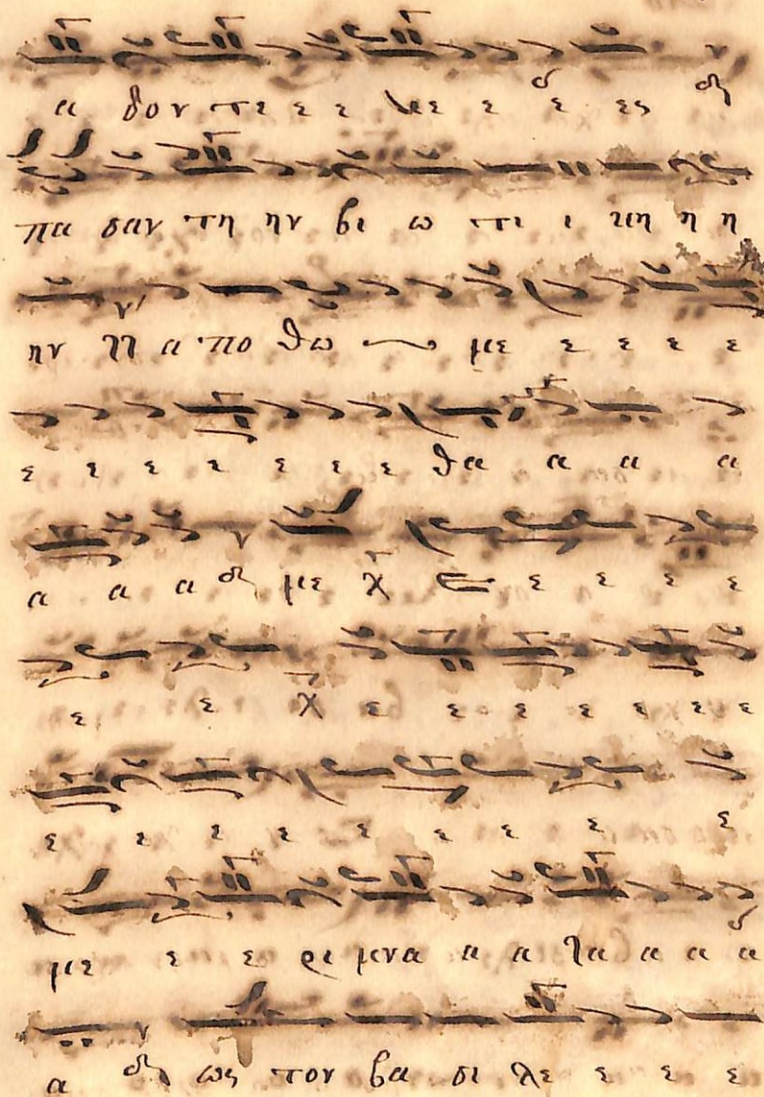 α δον τε ε ε λε ε ε ες
πα σαν τη ην βι ω τι ι κη η η
ην α πο θω με ε ε ε ε
ε ε ε ε ε ε ε θα α α α
α α α με χ ε ε ε ε ε
ε ε χ ε ε ε ε ε ε ε
ε ε ε ε ε ε ε ε ε
με ε ε ρι μνα α α α α α
α ως τον βα σι λε ε ε ε